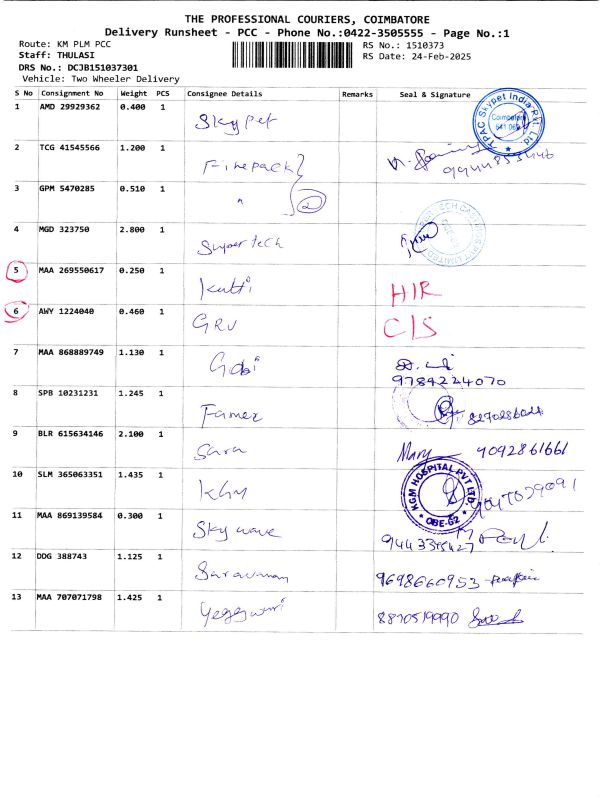 THE PROFESSIONAL COURIERS, COIMBATORE
Delivery Runsheet - PCC - Phone No.:0422-3505555 - Page No.:1
Route: KM PLM PCC
RS No.: 1510373
Staff: THULASI
RS Date: 24-Feb-2025
DRS No.: DCJB151037301
Vehicle: Two Wheeler Delivery
S No Consignment No Weight PCS Consignee Details Remarks Seal & Signature
1 AMD 29929362 0.400 1 Skypet
TPAC Skypet India Pvt. Ltd. Coimbatore
2 TCG 41545566 1.200 1 Finepack
3 GPM 5470285 0.510 1 " 2
4 MGD 323750 2.800 1 Supertech
5 MAA 269550617 0.250 1 Kutti HIR
6 AWY 1224040 0.460 1 GRU C/S
7 MAA 868889749 1.130 1 Gobi
9784224070
8 SPB 10231231 1.245 1 Famex
9 BLR 615634146 2.100 1 Sara Mary 9092861661
10 SLM 365063351 1.435 1 KGM
KGM HOSPITAL PVT LTD. CBE-62
11 MAA 869139584 0.300 1 Sky wave
12 DDG 388743 1.125 1 Saravanan 9698660953
13 MAA 707071798 1.425 1 8870519990